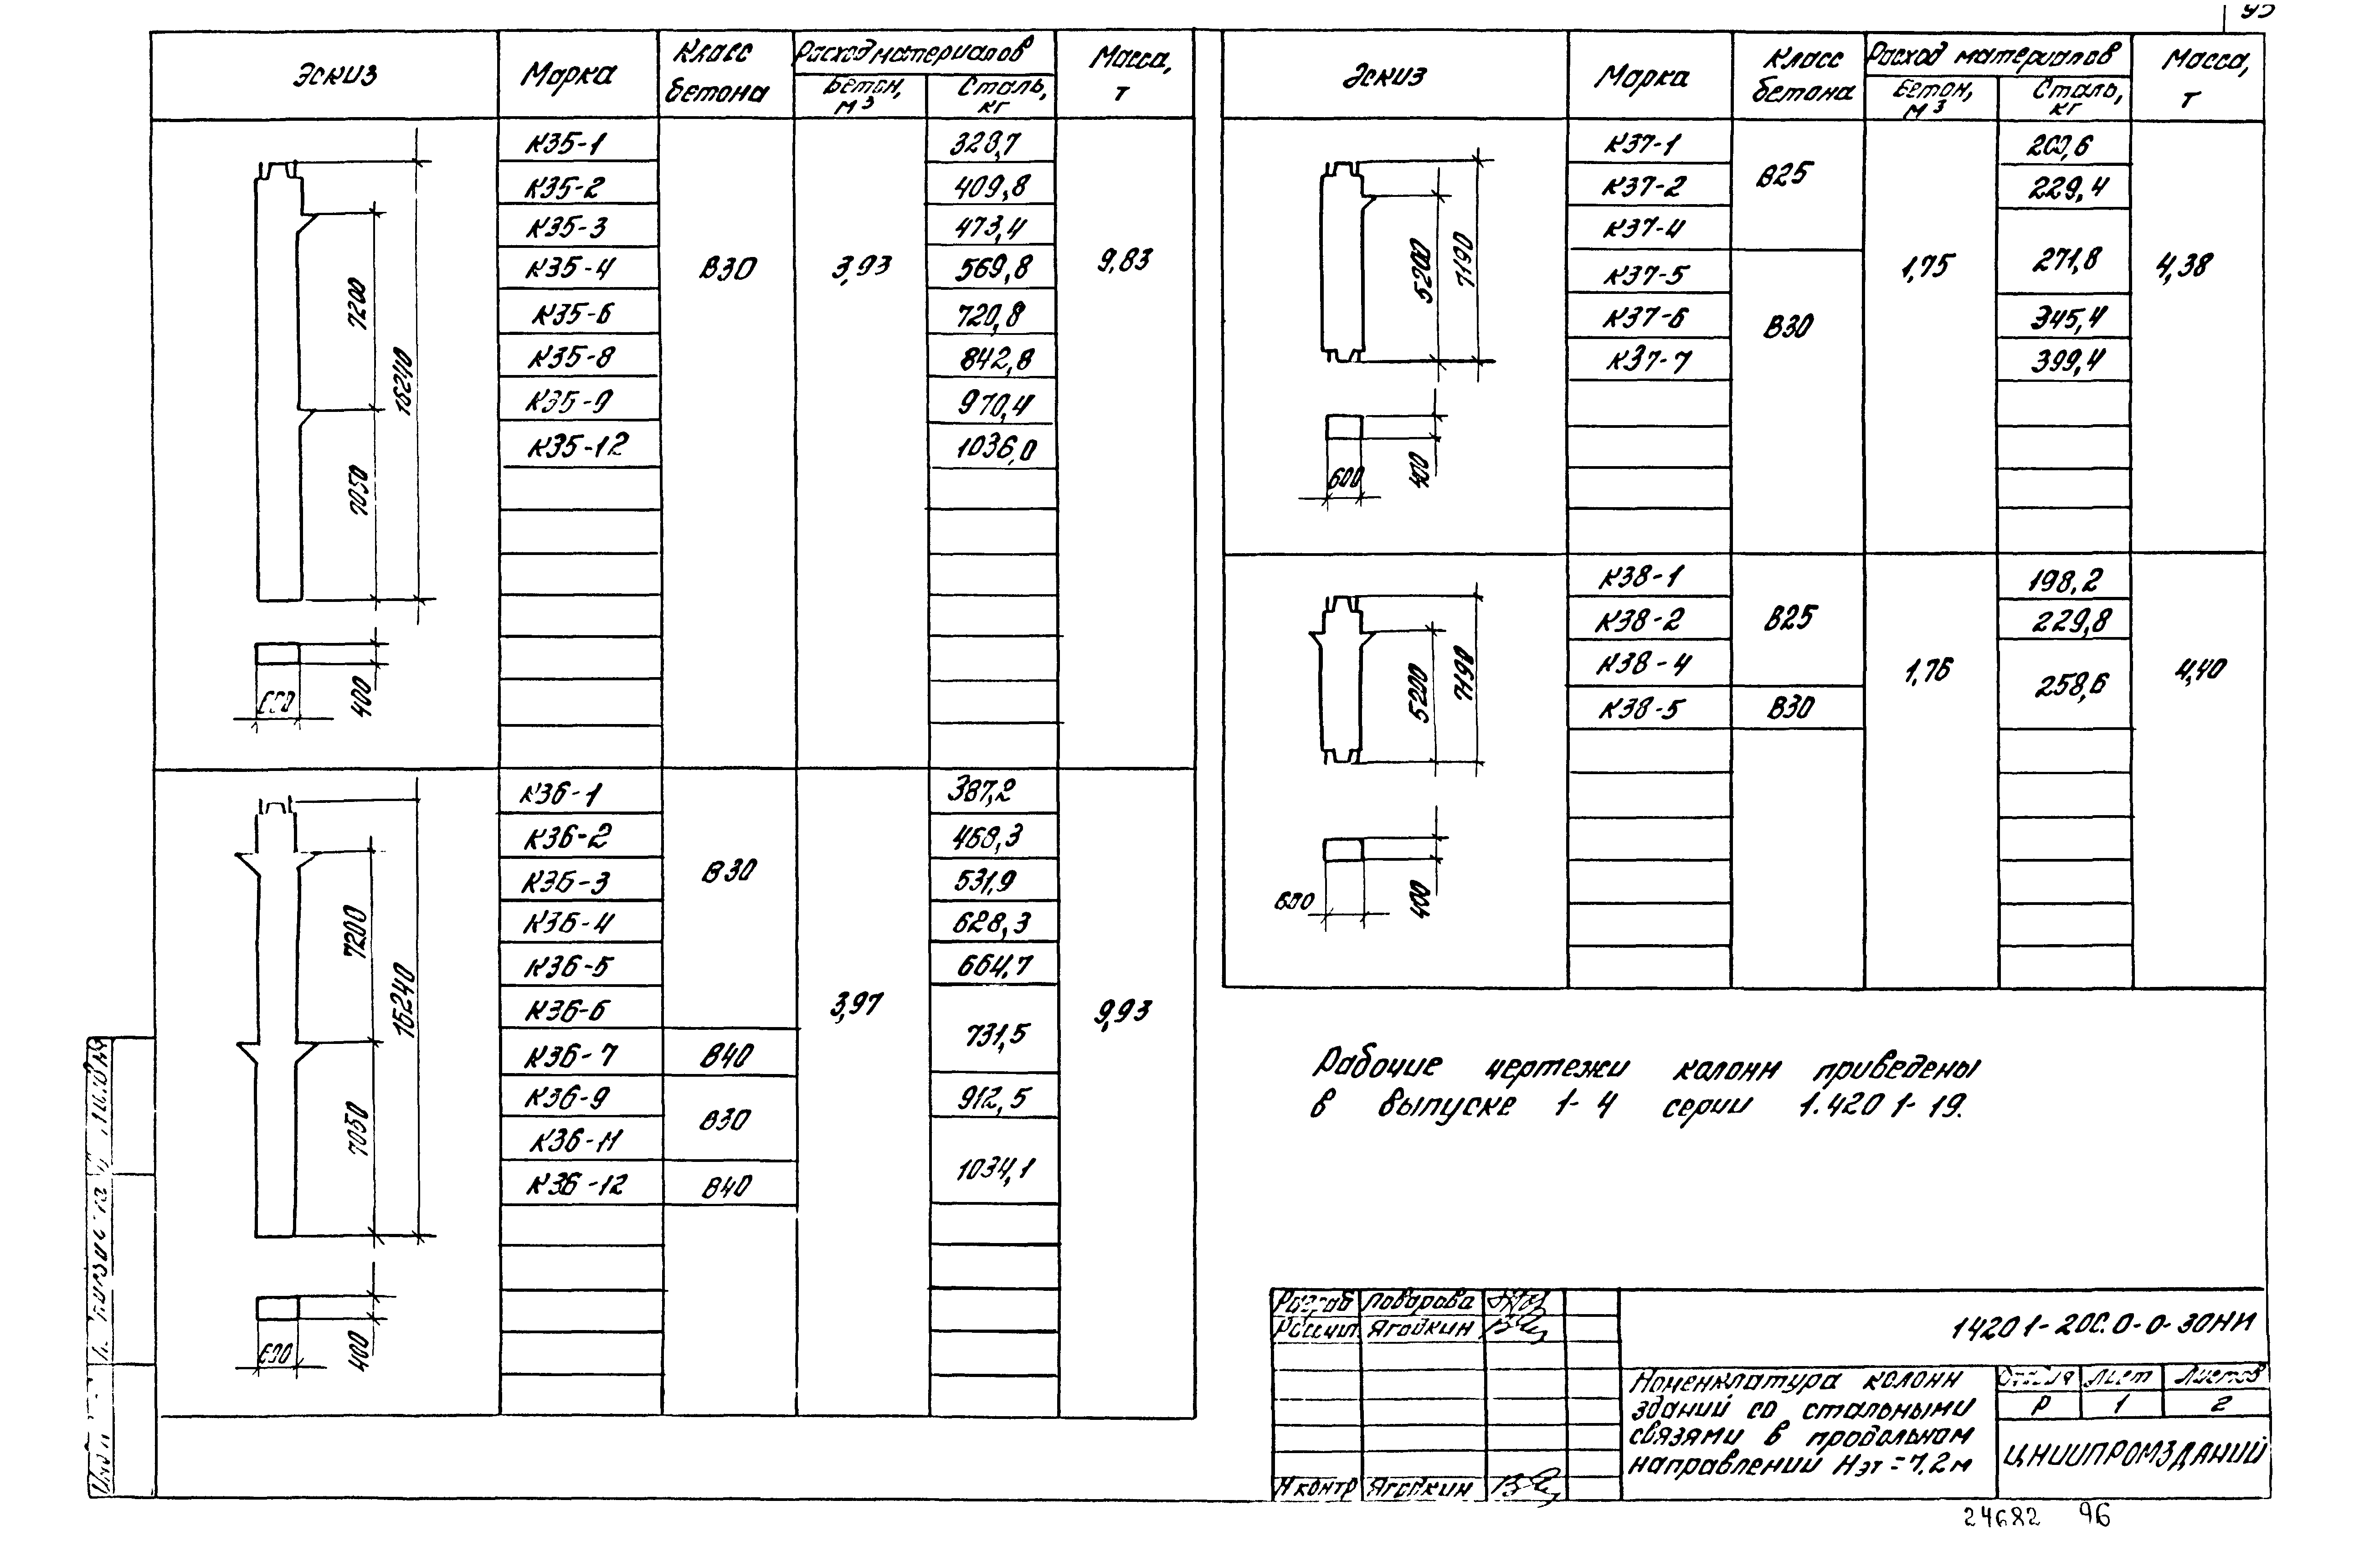 95
Эскиз Марка Класс бетона Расход материалов Масса, т
Бетон, м3 Сталь, кг
К35-1 328,7
К35-2 409,8
К35-3 473,4
К35-4 В30 3,93 569,8 9,83
К35-6 720,8
К35-8 842,8
К35-9 970,4
К35-12 1036,0
7200
15240
7050
400
600
К36-1 387,2
К36-2 468,3
К36-3 В30 531,9
К36-4 628,3
К36-5 664,7
К36-6 3,97 731,5 9,93
К36-7 В40
К36-9 В30 912,5
К36-11 1034,1
К36-12 В40
7200
15240
7050
400
600
Эскиз Марка Класс бетона Расход материалов Масса, т
Бетон, м3 Сталь, кг
К37-1 В25 200,6
К37-2 229,4
К37-4 1,75 271,8 4,38
К37-5 В30
К37-6 345,4
К37-7 399,4
5200
7190
400
600
К38-1 В25 198,2
К38-2 229,8
К38-4 1,76 258,6 4,40
К38-5 В30
5200
7190
400
600
Рабочие чертежи колонн приведены
в выпуске 1-4 серии 1.420 1-19.
Разраб Поварова
Рассчит. Ягодкин
Н контр Ягодкин
1420 1-20С.0-0-30НИ
Номенклатура колонн
зданий со стальными
связями в продольном
направлений Нэт=7,2м
Стадия Лист Листов
Р 1 2
ЦНИИПРОМЗДАНИЙ
24682 96